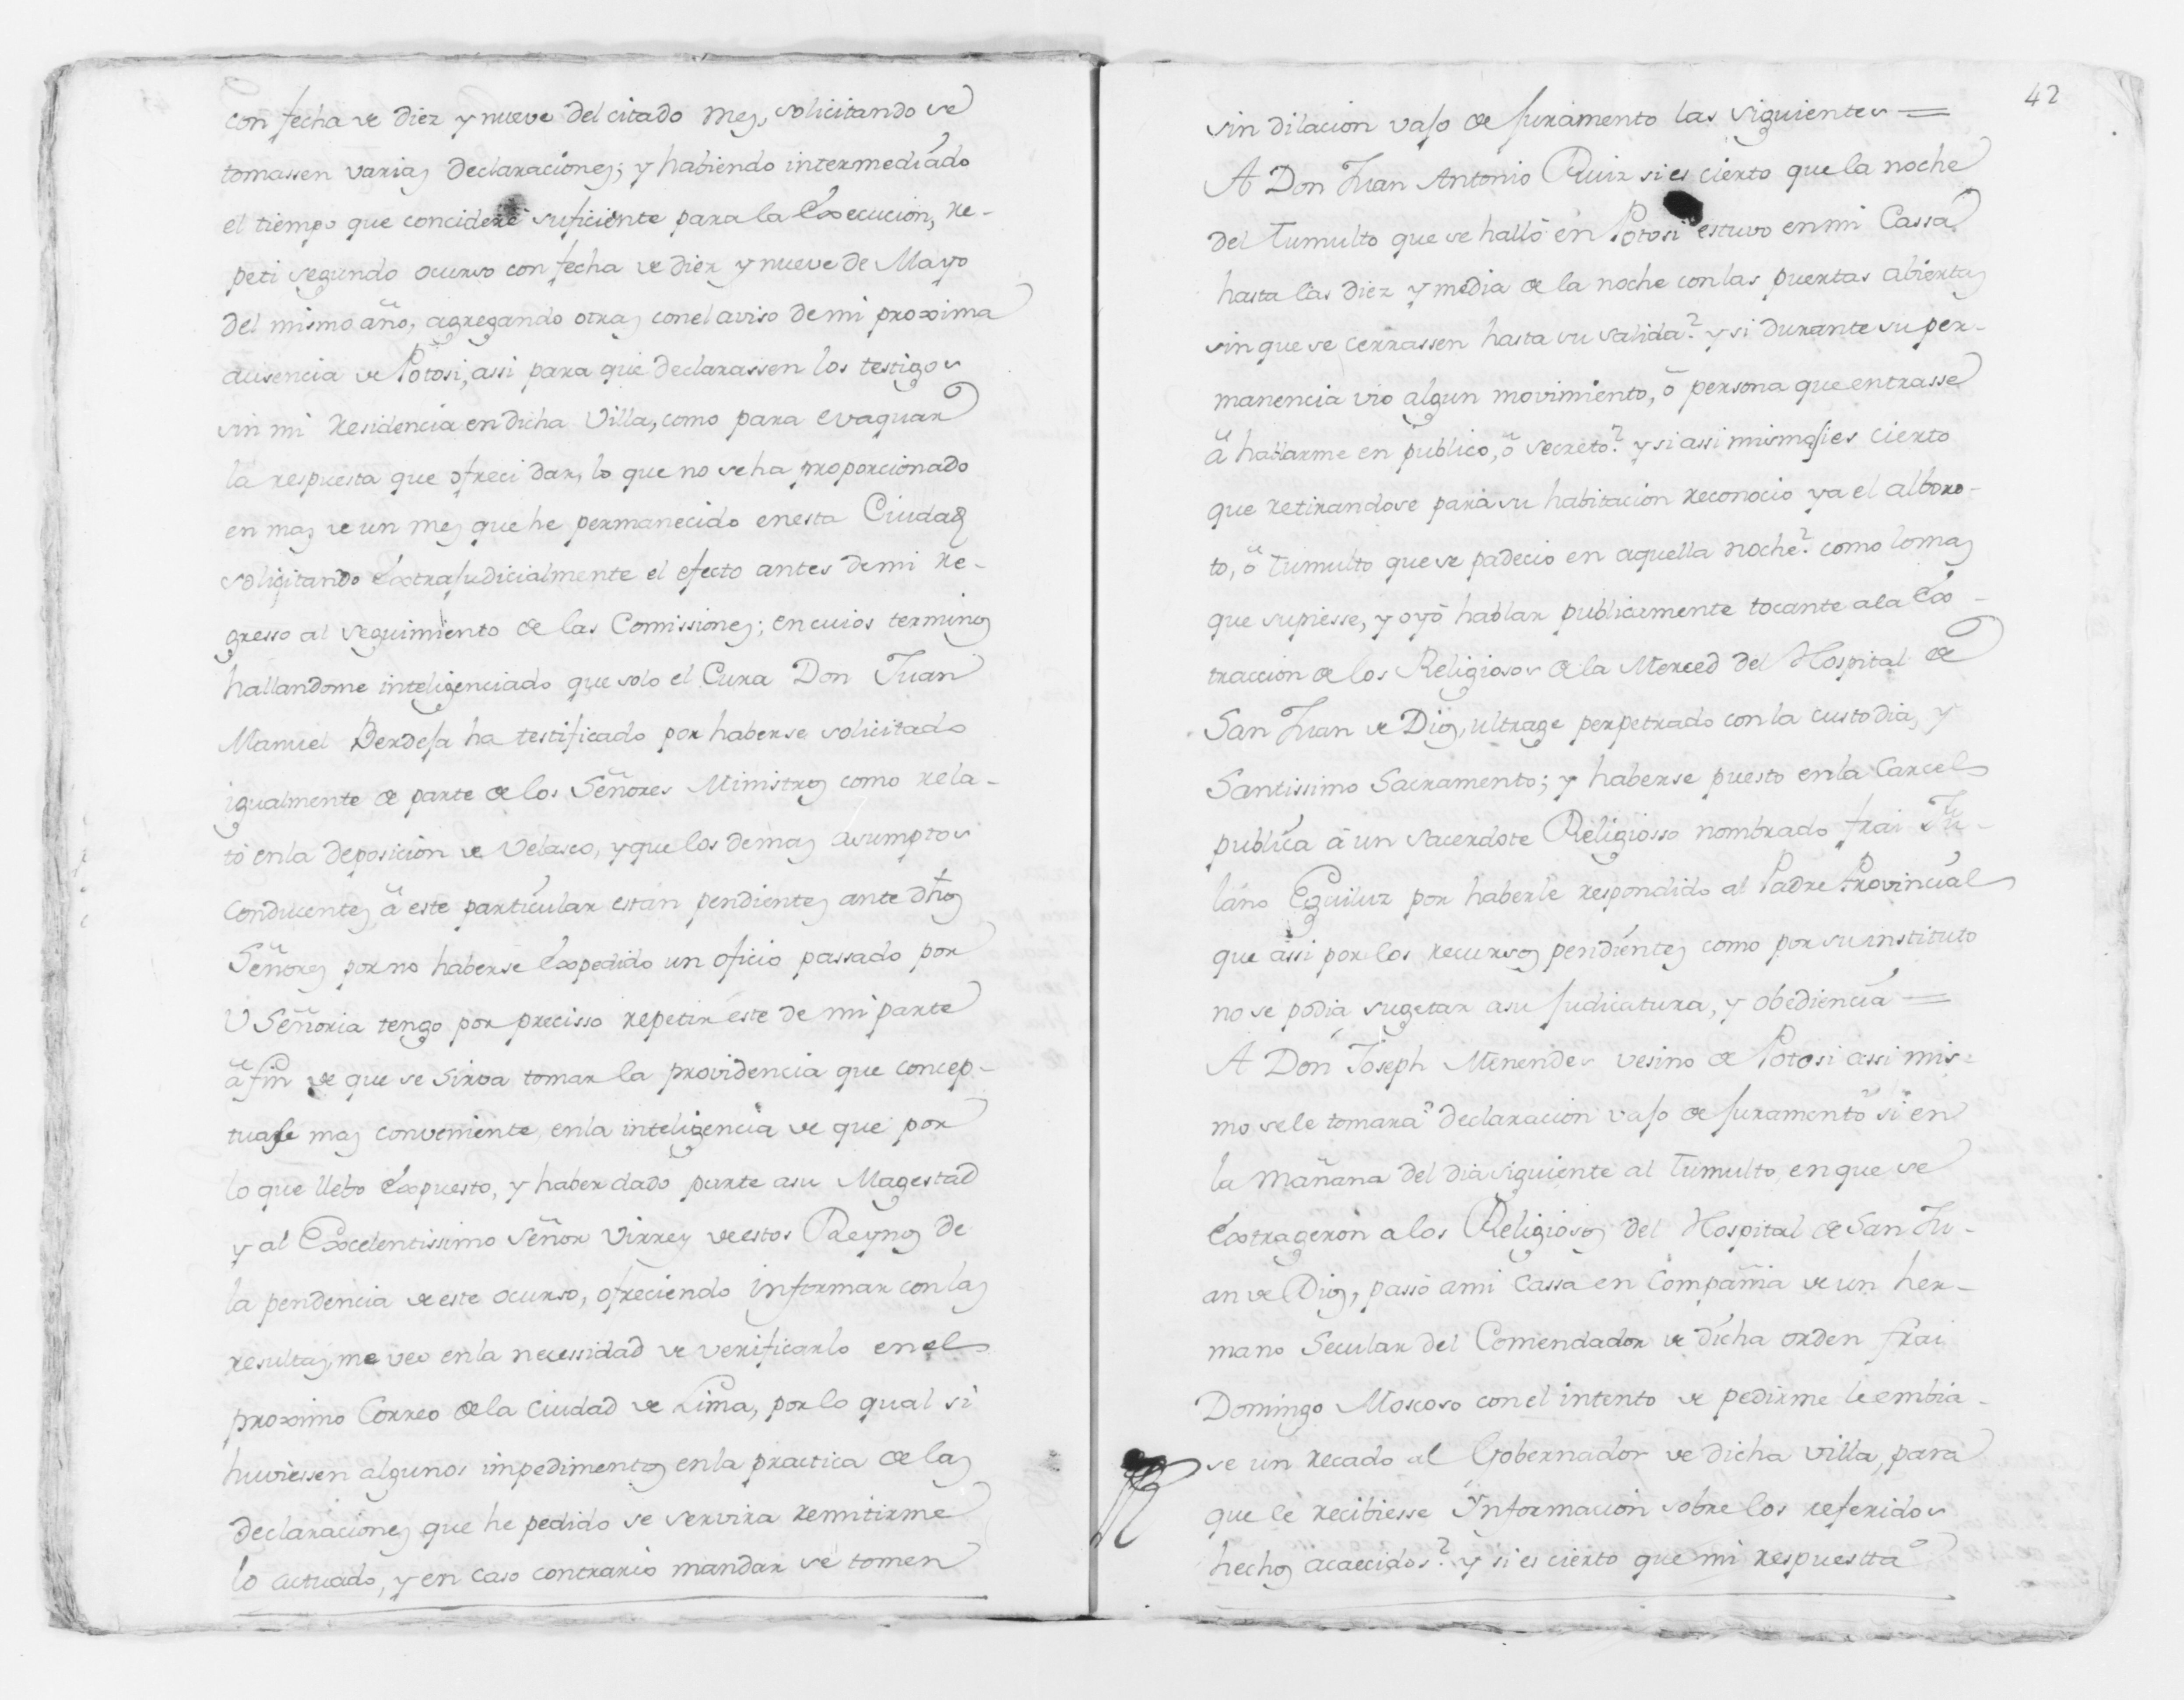 con fecha de diez y nueve del citado mes, solicitando se
tomassen varias declaraciones; y habiendo intermediado
el tiempo que concideré suficiente para la Execucion, re-
peti segundo ocurso con fecha de diez y nueve de Mayo
del mismo año, agregando otras con el aviso de mi proxima
ausencia de Potosi, assi para que declarassen los testigos
sin mi residencia en dicha Villa, como para evaquar
la respuesta que ofreci dar, lo que no se ha proporcionado
en mas de un mes que he permanecido en esta Ciudad
solicitando Extrajudicialmente el efecto antes de mi re-
gresso al seguimiento de las Comissiones; en cuios terminos
hallandome inteligenciado que solo el Cura Don Juan
Manuel Berdeja ha testificado por haberse solicitado
igualmente de parte de los Señores Ministros como rela-
tó en la deposicion de Velasco, y que los demas asumptos
conducentes á este particular están pendientes ante dhos
Señores por no haberse Expedido un oficio passado por
V Señoria tengo por precisso repetir este de mi parte
á fin de que se sirva tomar la providencia que concep-
tuase mas conveniente, en la inteligencia de que por
lo que llebo Expuesto, y haber dado parte a su Magestad
y al Excelentissimo Señor Virrey de estos Reynos de
la pendencia de este ocurso, ofreciendo informar con las
resultas, me veo en la necessidad de verificarlo en el
proximo Correo de la Ciudad de Lima, por lo qual si
huviessen algunos impedimentos en la practica de las
declaraciones que he pedido se servira remitirme
lo actuado, y en caso contrario mandar se tomen
42
sin dilacion vajo de juramento las siguientes =
A Don Juan Antonio Ruiz si es cierto que la noche
del Tumulto que se halló en Potosi estuvo en mi Cassa
hasta las diez y media de la noche con las puertas abiertas
sin que se cerrassen hasta su salida? y si durante su per-
manencia vio algun movimiento, ó persona que entrasse
á hablarme en publico, ó secreto? y si assi mismo si es cierto
que retirandose para su habitacion reconocio ya el alboro-
to, ó Tumulto que se padecio en aquella noche? como lo mas
que supiesse, y oyó hablar publicamente tocante a la Ex-
traccion de los Religiosos de la Merced del Hospital de
San Juan de Dios, ultrage perpetrado con la custodia, y
Santissimo Sacramento; y haberse puesto en la Carcel
publica á un Sacerdote Religiosso nombrado frai Ju-
lano Eguiluz por haberle respondido al Padre Provincial
que assi por los recursos pendientes como por su instituto
no se podia sugetar a su judicatura, y obediencia =
A Don Joseph Menendes vesino de Potosi assi mis-
mo se le tomara declaracion vajo de juramento si en
la mañana del dia siguiente al Tumulto, en que se
Extrageron a los Religiosos del Hospital de San Ju-
an de Dios, passó a mi Cassa en Compañia de un her-
mano Secular del Comendador de dicha orden frai
Domingo Moscoso con el intento de pedirme le embia-
se un recado al Gobernador de dicha villa, para
que le recibiesse Informacion sobre los referidos
hechos acaecidos? y si es cierto que mi respuestta